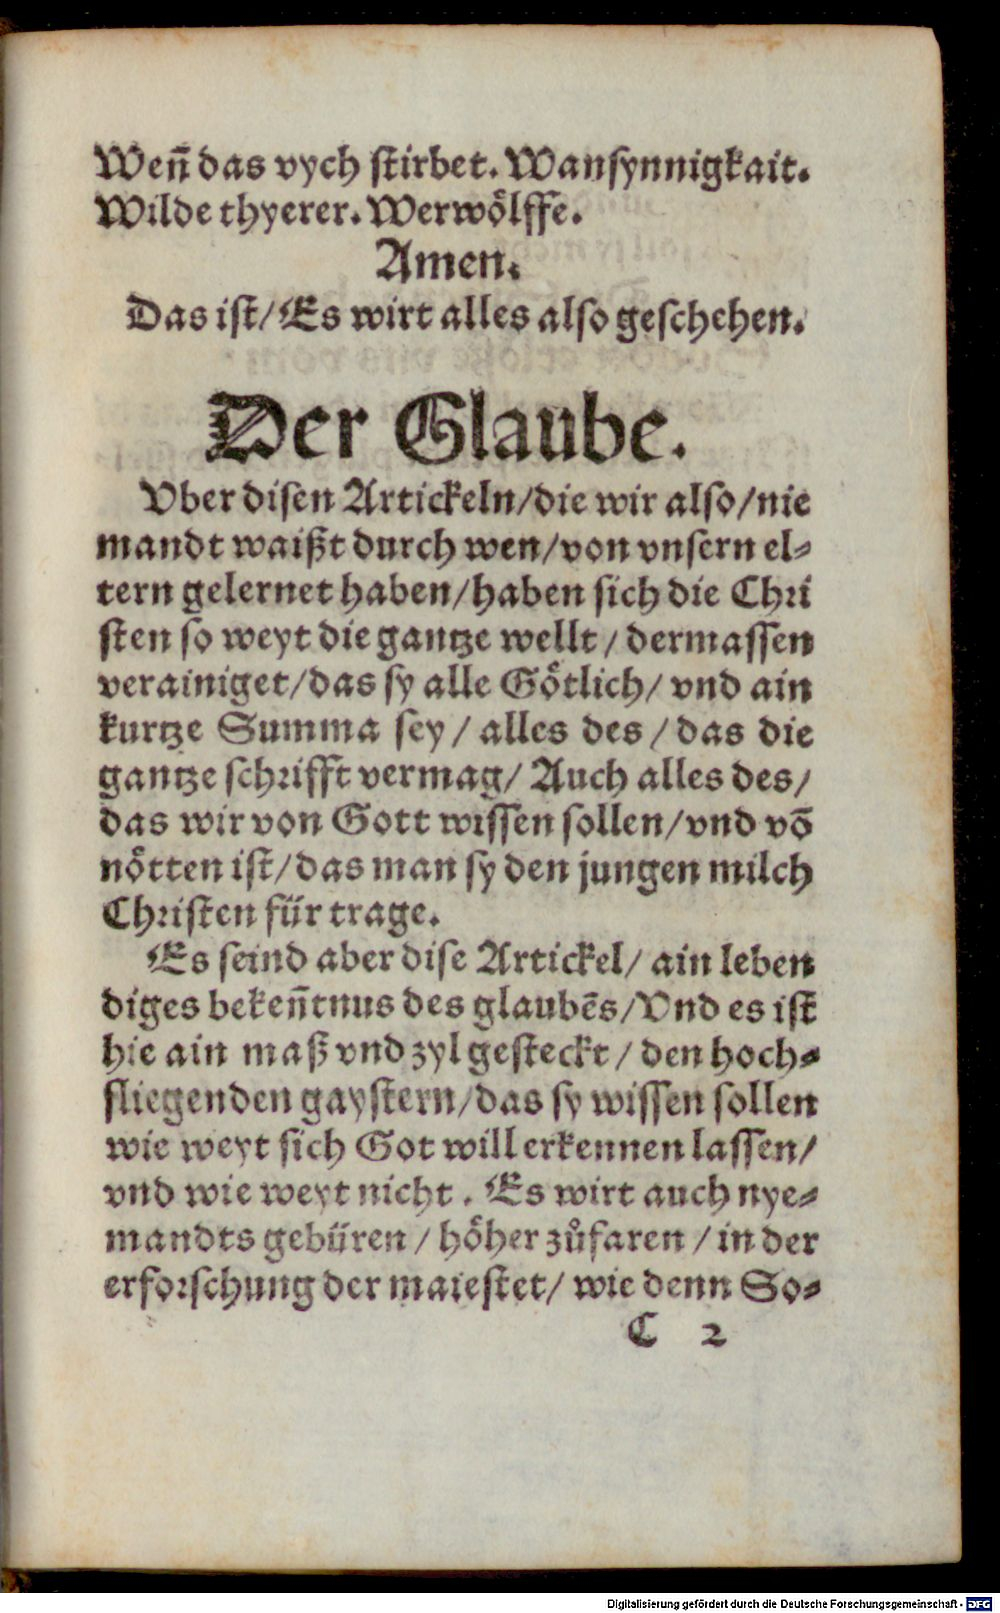 Wen̄ das vych stirbet. Wansynnigkait.
Wilde thyerer. Werwölffe.
Amen.
Das ist/ Es wirt alles also geschehen.
Der Glaube.
Vber disen Artickeln/die wir also/nie
mandt waißt durch wen/von vnsern el-
tern gelernet haben/haben sich die Chri
sten so weyt die gantze wellt/ dermassen
verainiget/das sy alle Götlich/ vnd ain
kurtze Summa sey/ alles des/ das die
gantze schrifft vermag/ Auch alles des/
das wir von Gott wissen sollen/vnd vō
nötten ist/das man sy den jungen milch
Christen für trage.
Es seind aber dise Artickel/ ain leben
diges beken̄tnus des glaubēs/Vnd es ist
hie ain maß vnd zyl gesteckt/ den hoch-
fliegenden gaystern/das sy wissen sollen
wie weyt sich Got will erkennen lassen/
vnd wie weyt nicht. Es wirt auch nye-
mandts gebüren/ höher zůfaren/ in der
erforschung der maiestet/ wie denn So-
C 2
Digitalisierung gefördert durch die Deutsche Forschungsgemeinschaft - DFG